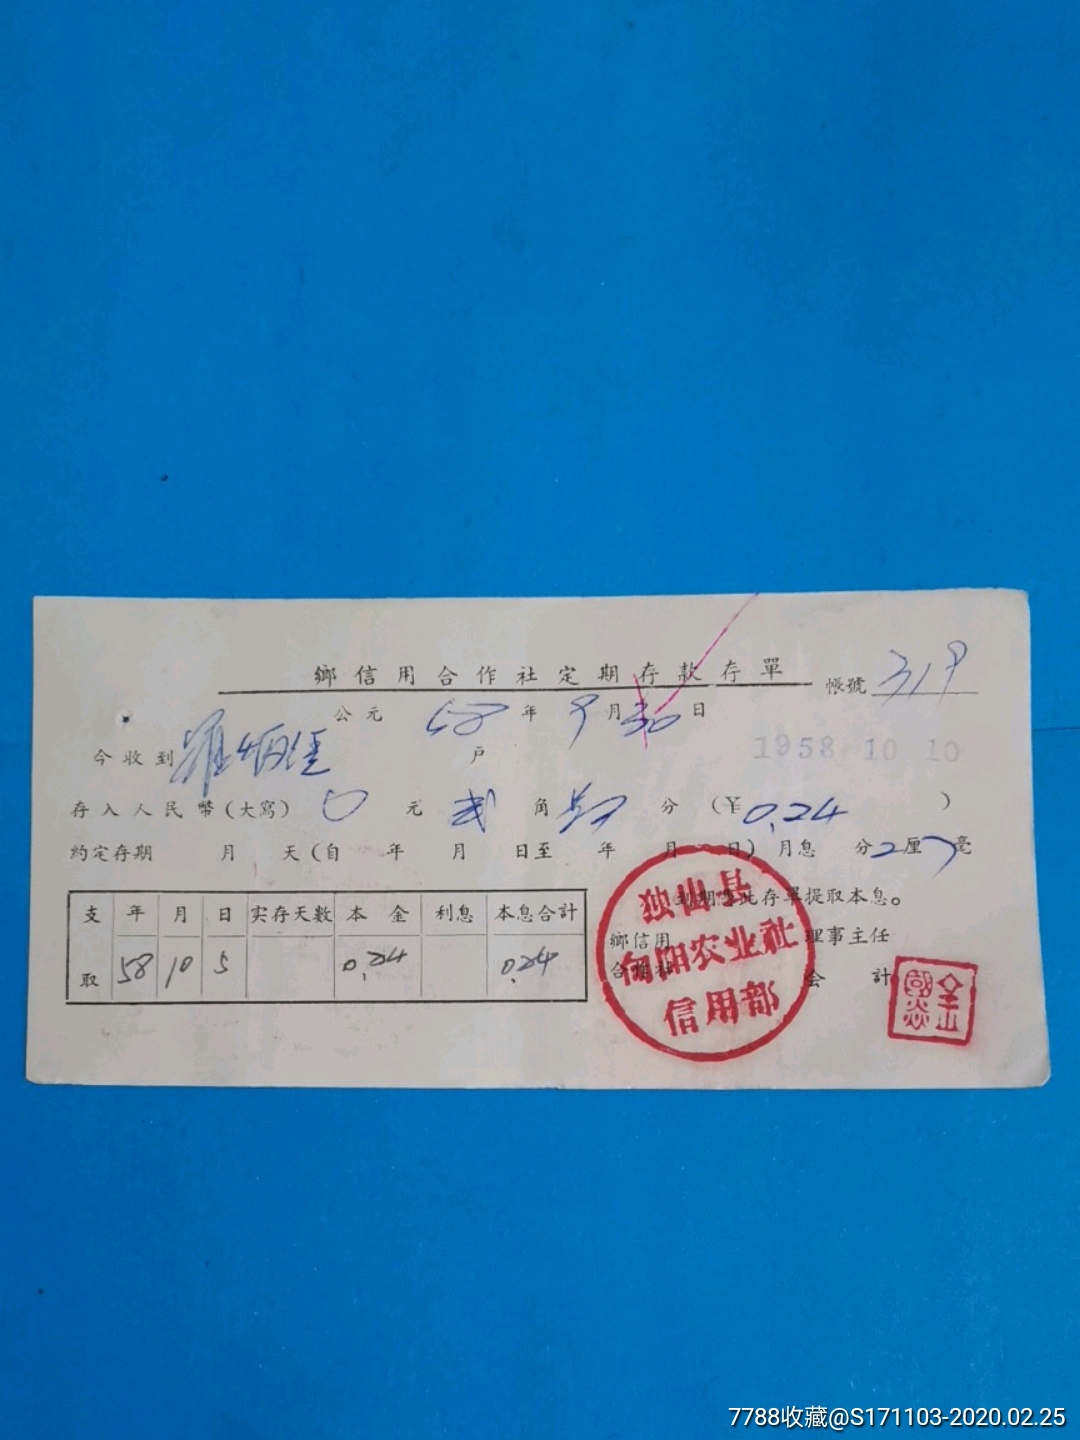 鄉信用合作社定期存款存單
帳號 319
公元 58 年 9 月 30 日
1958 10 10
今收到 戶
存入人民幣(大寫) 0 元 弍 角 分 (¥ 0.24 )
約定存期 月 天(自 年 月 日至 年 月 日) 月息 分 2 厘 7 毫
到期凭此存單提取本息。
支取 年 月 日 実存天數 本金 利息 本息合計
58 10 5 0.24 0.24
鄉信用合作社 理事主任
会計
独山县
向阳农业社
信用部
7788收藏@S171103-2020.02.25